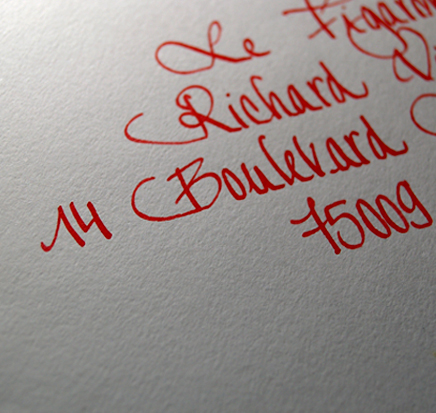 Le Figaro
Richard
14 Boulevard
75009